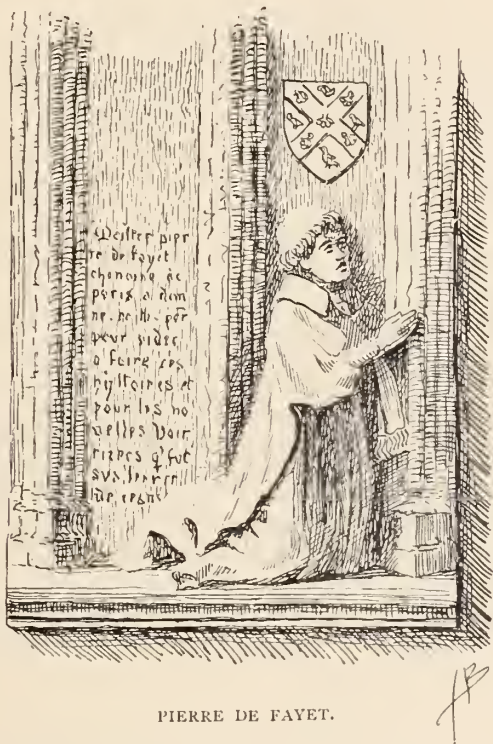 Meister pier
re de fayet
chanoine de
paris a don
ne. ce. lb. par
pour aider
a faire ces
hystoires et
pour les no
uelles Voir
rieres q' sôt
sus
de ceans
PIERRE DE FAYET.